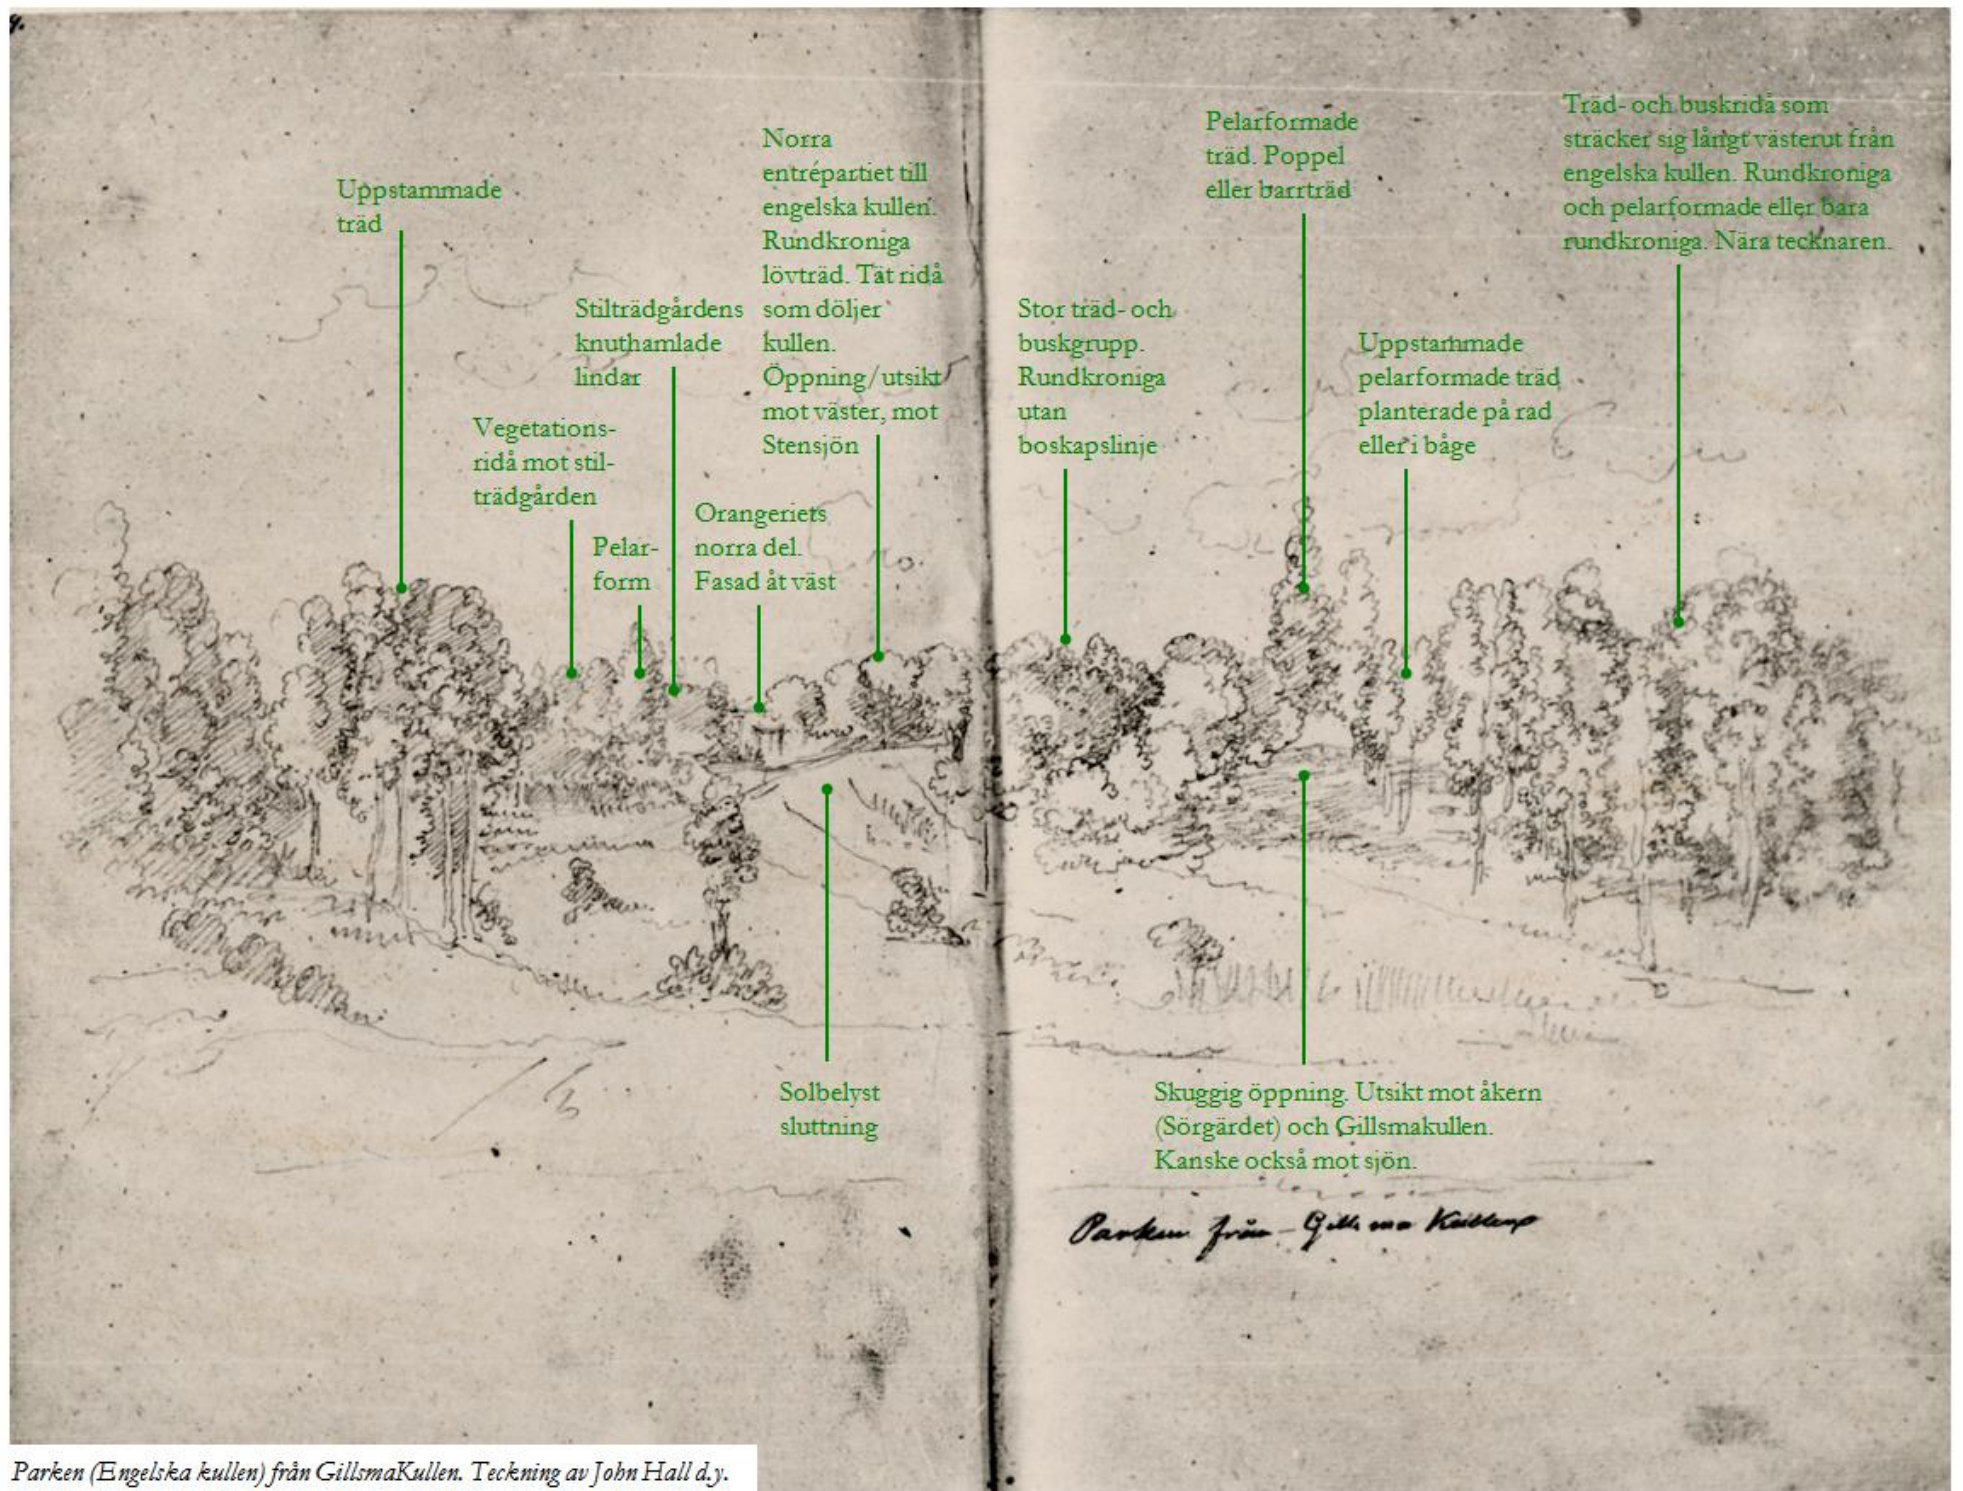 9.
Uppstammade
träd
Vegetations-
ridå mot stil-
trädgården
Stilträdgårdens
knuthamlade
lindar
Pelar-
form
Norra
entrépartiet till
engelska kullen.
Rundkroniga
lövträd. Tät ridå
som döljer
kullen.
Öppning/utsikt
mot väster, mot
Stensjön
Orangeriets
norra del.
Fasad åt väst
Stor träd- och
buskgrupp.
Rundkroniga
utan
boskapslinje
Pelarformade
träd. Poppel
eller barrträd
Uppstammade
pelarformade träd
planterade på rad
eller i båge
Träd- och buskridå som
sträcker sig långt västerut från
engelska kullen. Rundkroniga
och pelarformade eller bara
rundkroniga. Nära tecknaren.
Solbelyst
sluttning
Skuggig öppning. Utsikt mot åkern
(Sörgärdet) och Gillsmakullen.
Kanske också mot sjön.
Parken från Gillsma Kullen
Parken (Engelska kullen) från GillsmaKullen. Teckning av John Hall d.y.